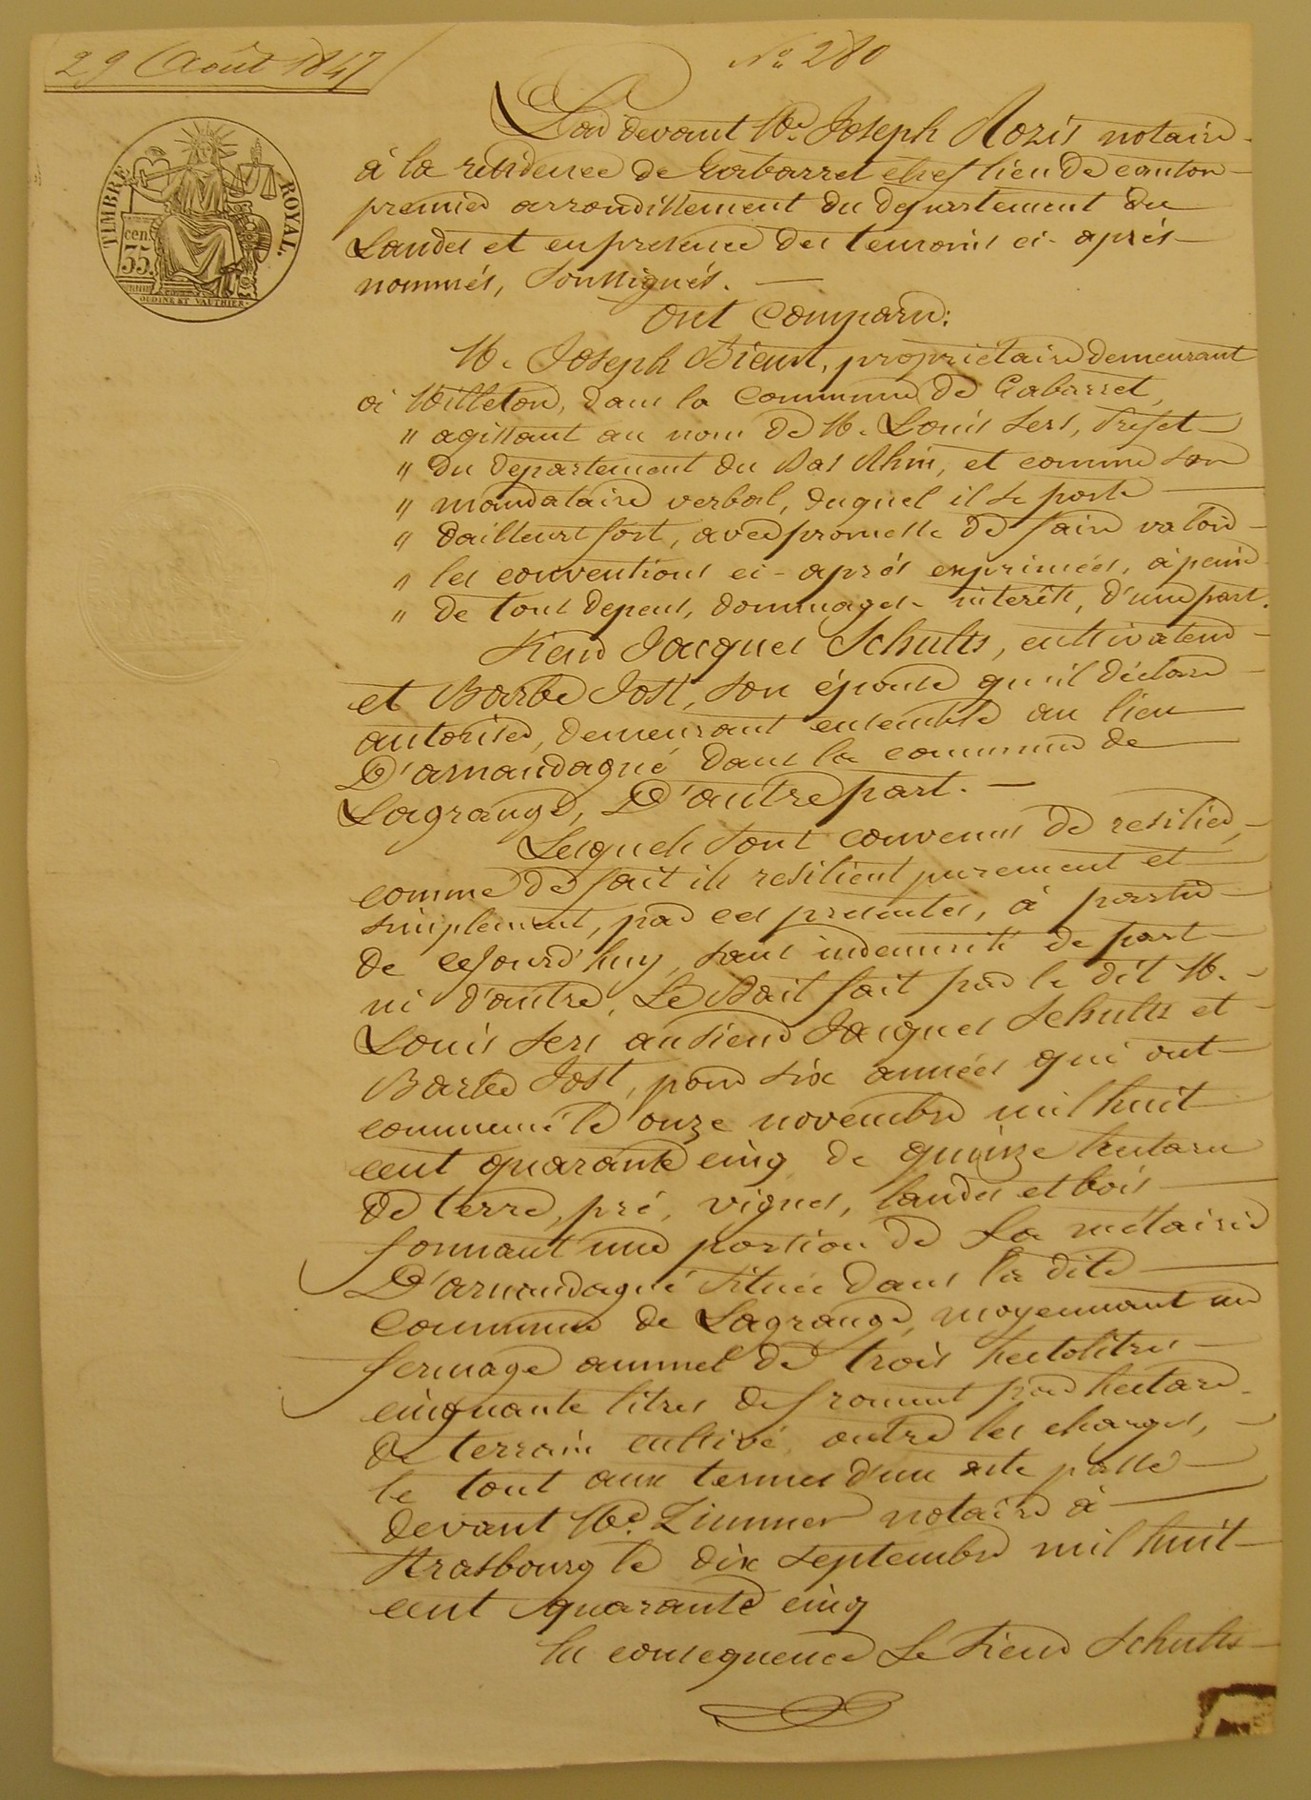 29 Août 1847
N.º 280
TIMBRE ROYAL.
cen.
35.
OUDINE ET VAUTHIER.
Par devant Me. Joseph Rozis notaire
à la residence de Gabarret chef lieu de canton
premier arrondissement du departement des
Landes et en presence des temoins ci-après
nommés, soussignés.
Ont Comparu:
M. Joseph Bient, propriétaire demeurant
à Milleton, dans la commune de Gabarret,
" agissant au nom de M. Louis Sers, Prefet
" du departement du Bas Rhin, et comme son
" mandataire verbal, duquel il se porte
" dailleurs fort, avec promesse de faire valoir
" les conventions ci-après exprimées, à peine
" de tous depens, dommages-interêts, d'une part.
Sieur Jacques Schults, cultivateur
et Barbe Jost, son épouse qu'il déclare
autoriser, demeurant ensemble au lieu
D'arnaudagué dans la commune de
Lagrange, D'autre part.
Lesquels sont convenus de resilier,
comme de fait ils resilient purement et
simplement, par ces presentes, à partir
de cejourd'huy, sans indemnité de part
ni d'autre, Le Bail fait par le dit M.
Louis Sers au sieur Jacques Schults et
Barbe Jost, pour six années qui ont
commencé le onze novembre mil huit
cent quarante cinq de quinze hectares
de terre, pré, vignes, landes et bois
formant une portion de La métairie
D'arnaudagué située dans la dite
Commune de Lagrange, moyennant un
fermage annuel de trois hectolitres
cinquante litres de froment par hectare
de terrain cultivé outre les charges,
le tout aux termes d'un acte passé
devant Me. Zimmer notaire à
Strasbourg le dix septembre mil huit
cent quarante cinq
En consequence Le Sieur Schults